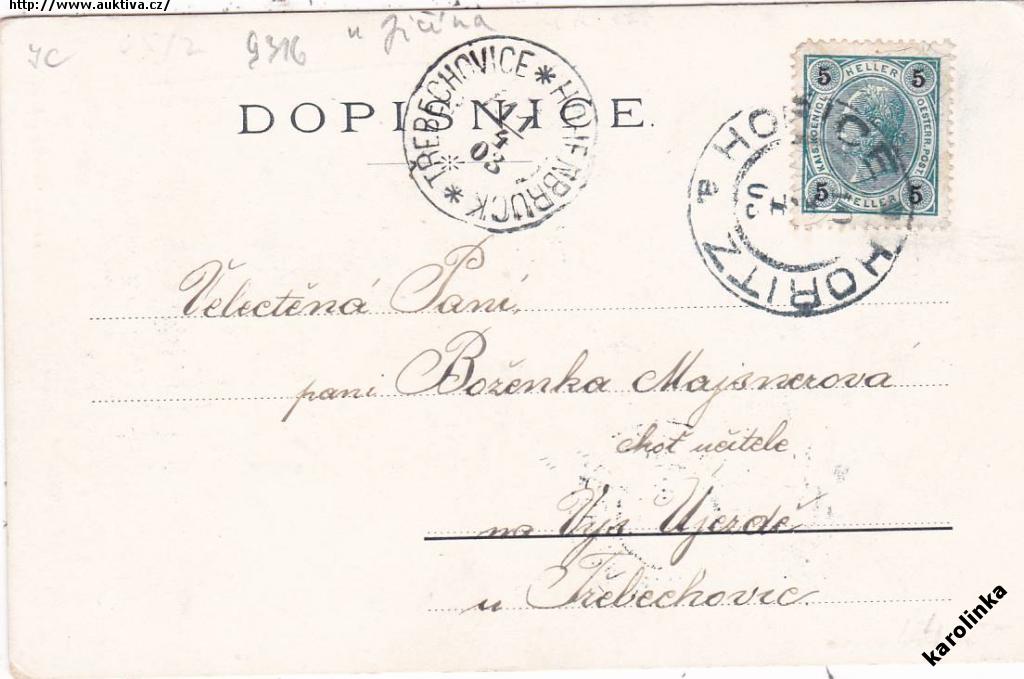 http://www.auktiva.cz/
JC
9316 u Jičína
DOPISNICE.
TŘEBECHOVICE * HOHENBRUCK *
03
5 HELLER 5
KAIS.KOENIGL. OESTERR.POST
5 HELLER 5
HOŘICE
a HOŘITZ
Velectěná Paní,
paní Boženka Majsnerova
choť učitele
na Vys. Ujezdě
u Třebechovic.
karolinka